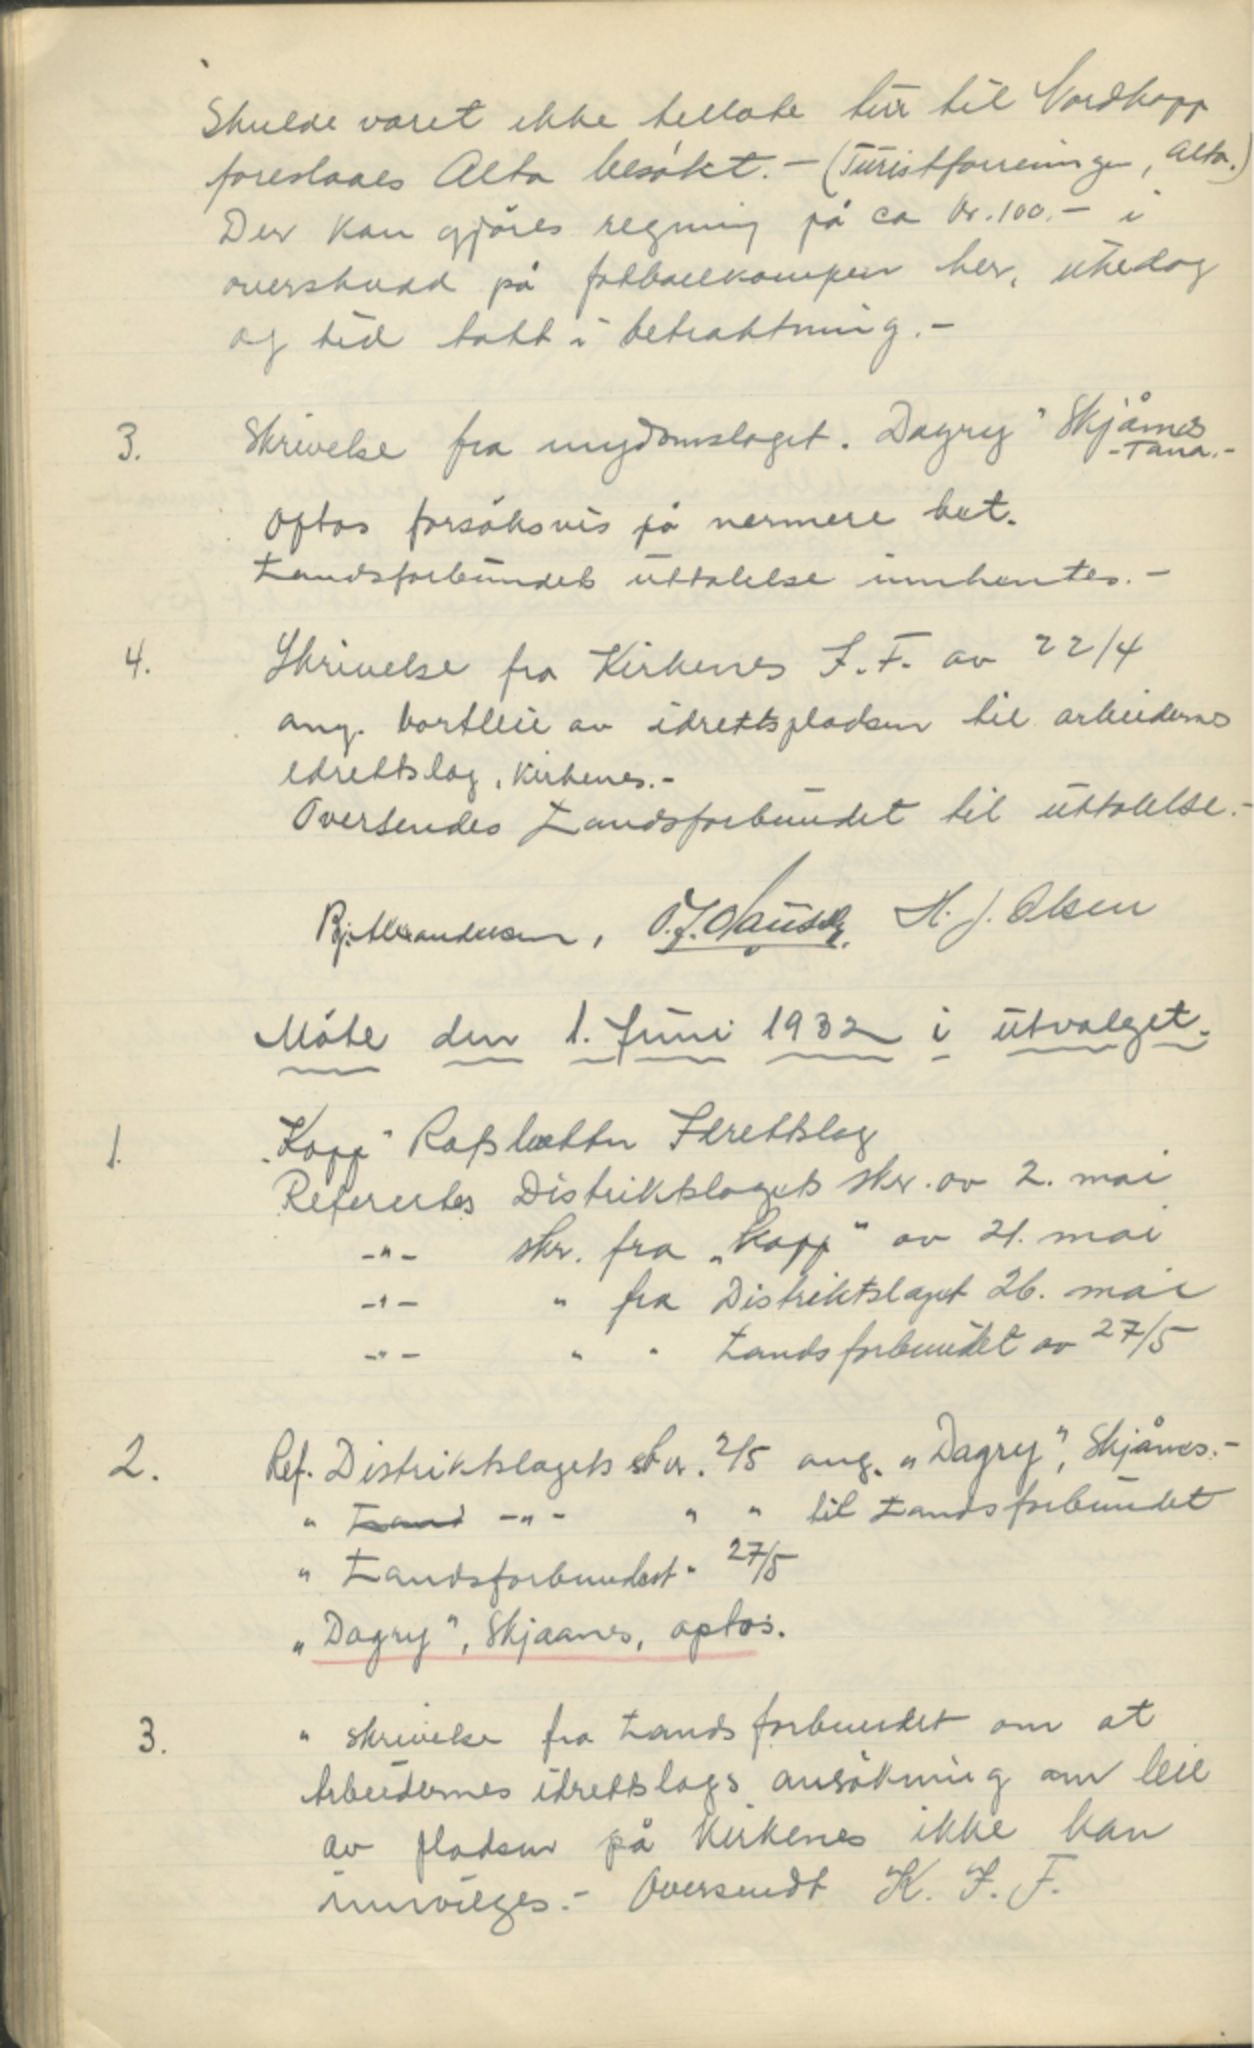 Skulde været ikke tillate tur til Nordkapp
foreslaaes Alta besökt. - (Turistforreningen, Alta.)
Der kan gjöres regning på ca kr. 100.- i
overskudd på fotballkampen her, ukedag
og tid tatt i betraktning.-
3. Skrivelse fra ungdomslaget. Dagry" Skjånes
-Tana.-
Optas forsöksvis på nermere bet.
Landsforbundets uttalelse innhentes.-
4. Skrivelse fra Kirkenes I.F. av 22/4
ang. bortleie av idrettspladsen til arbeidernes
idrettslag, Kirkenes.-
Oversendes Landsforbundet til uttalelse.-
Bj. Alexandersen, H. J. Olsen
Möte den 1. Juni 1932 i utvalget.
1. "Kapp" Rafsbotten Idrettslag
Refertes Distriktslagets skr. av 2. mai
-"- skr. fra "Kapp" av 21. mai
-"- " fra Distriktslaget 26. mai
-"- " " Landsforbundet av 27/5
2. Ref. Distriktslagets skr. 2/5 ang. "Dagry", Skjånes.-
" Land -"- " " til Landsforbundet
" Landsforbundet " 27/5
"Dagry", Skjaanes, optas.
3. " skrivelse fra Landsforbundet om at
Arbeidernes idrettslags ansökning om leie
av pladsen på Kirkenes ikke kan
innvilges.- Oversendt K. I. F.